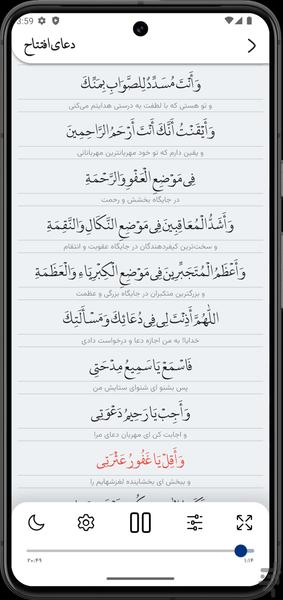 3:59
دعای افتتاح
وَأَنْتَ مُسَدِّدٌ لِلصَّوَابِ بِمَنِّكَ
و تو هستی که با لطفت به درستی هدایتم می‌کنی
وَأَيْقَنْتُ أَنَّكَ أَنْتَ أَرْحَمُ الرَّاحِمِينَ
و یقین دارم که تو خود مهربانترین مهربانانی
فِي مَوْضِعِ الْعَفْوِ وَالرَّحْمَةِ
در جایگاه بخشش و رحمت
وَأَشَدُّ الْمُعَاقِبِينَ فِي مَوْضِعِ النَّكَالِ وَالنَّقِمَةِ
و سخت‌ترین کیفردهندگان در جایگاه عقوبت و انتقام
وَأَعْظَمُ الْمُتَجَبِّرِينَ فِي مَوْضِعِ الْكِبْرِيَاءِ وَالْعَظَمَةِ
و بزرگترین متکبران در جایگاه بزرگی و عظمت
اللَّهُمَّ أَذِنْتَ لِي فِي دُعَائِكَ وَمَسْأَلَتِكَ
خدایا! به من اجازه دعا و درخواست دادی
فَاسْمَعْ يَا سَمِيعُ مِدْحَتِي
پس بشنو ای شنوای ستایش من
وَأَجِبْ يَا رَحِيمُ دَعْوَتِي
و اجابت کن ای مهربان دعای مرا
وَأَقِلْ يَا غَفُورُ عَثْرَتِي
و ببخش ای بخشاینده لغزشهایم را
۲۰:۴۹
۱:۱۴